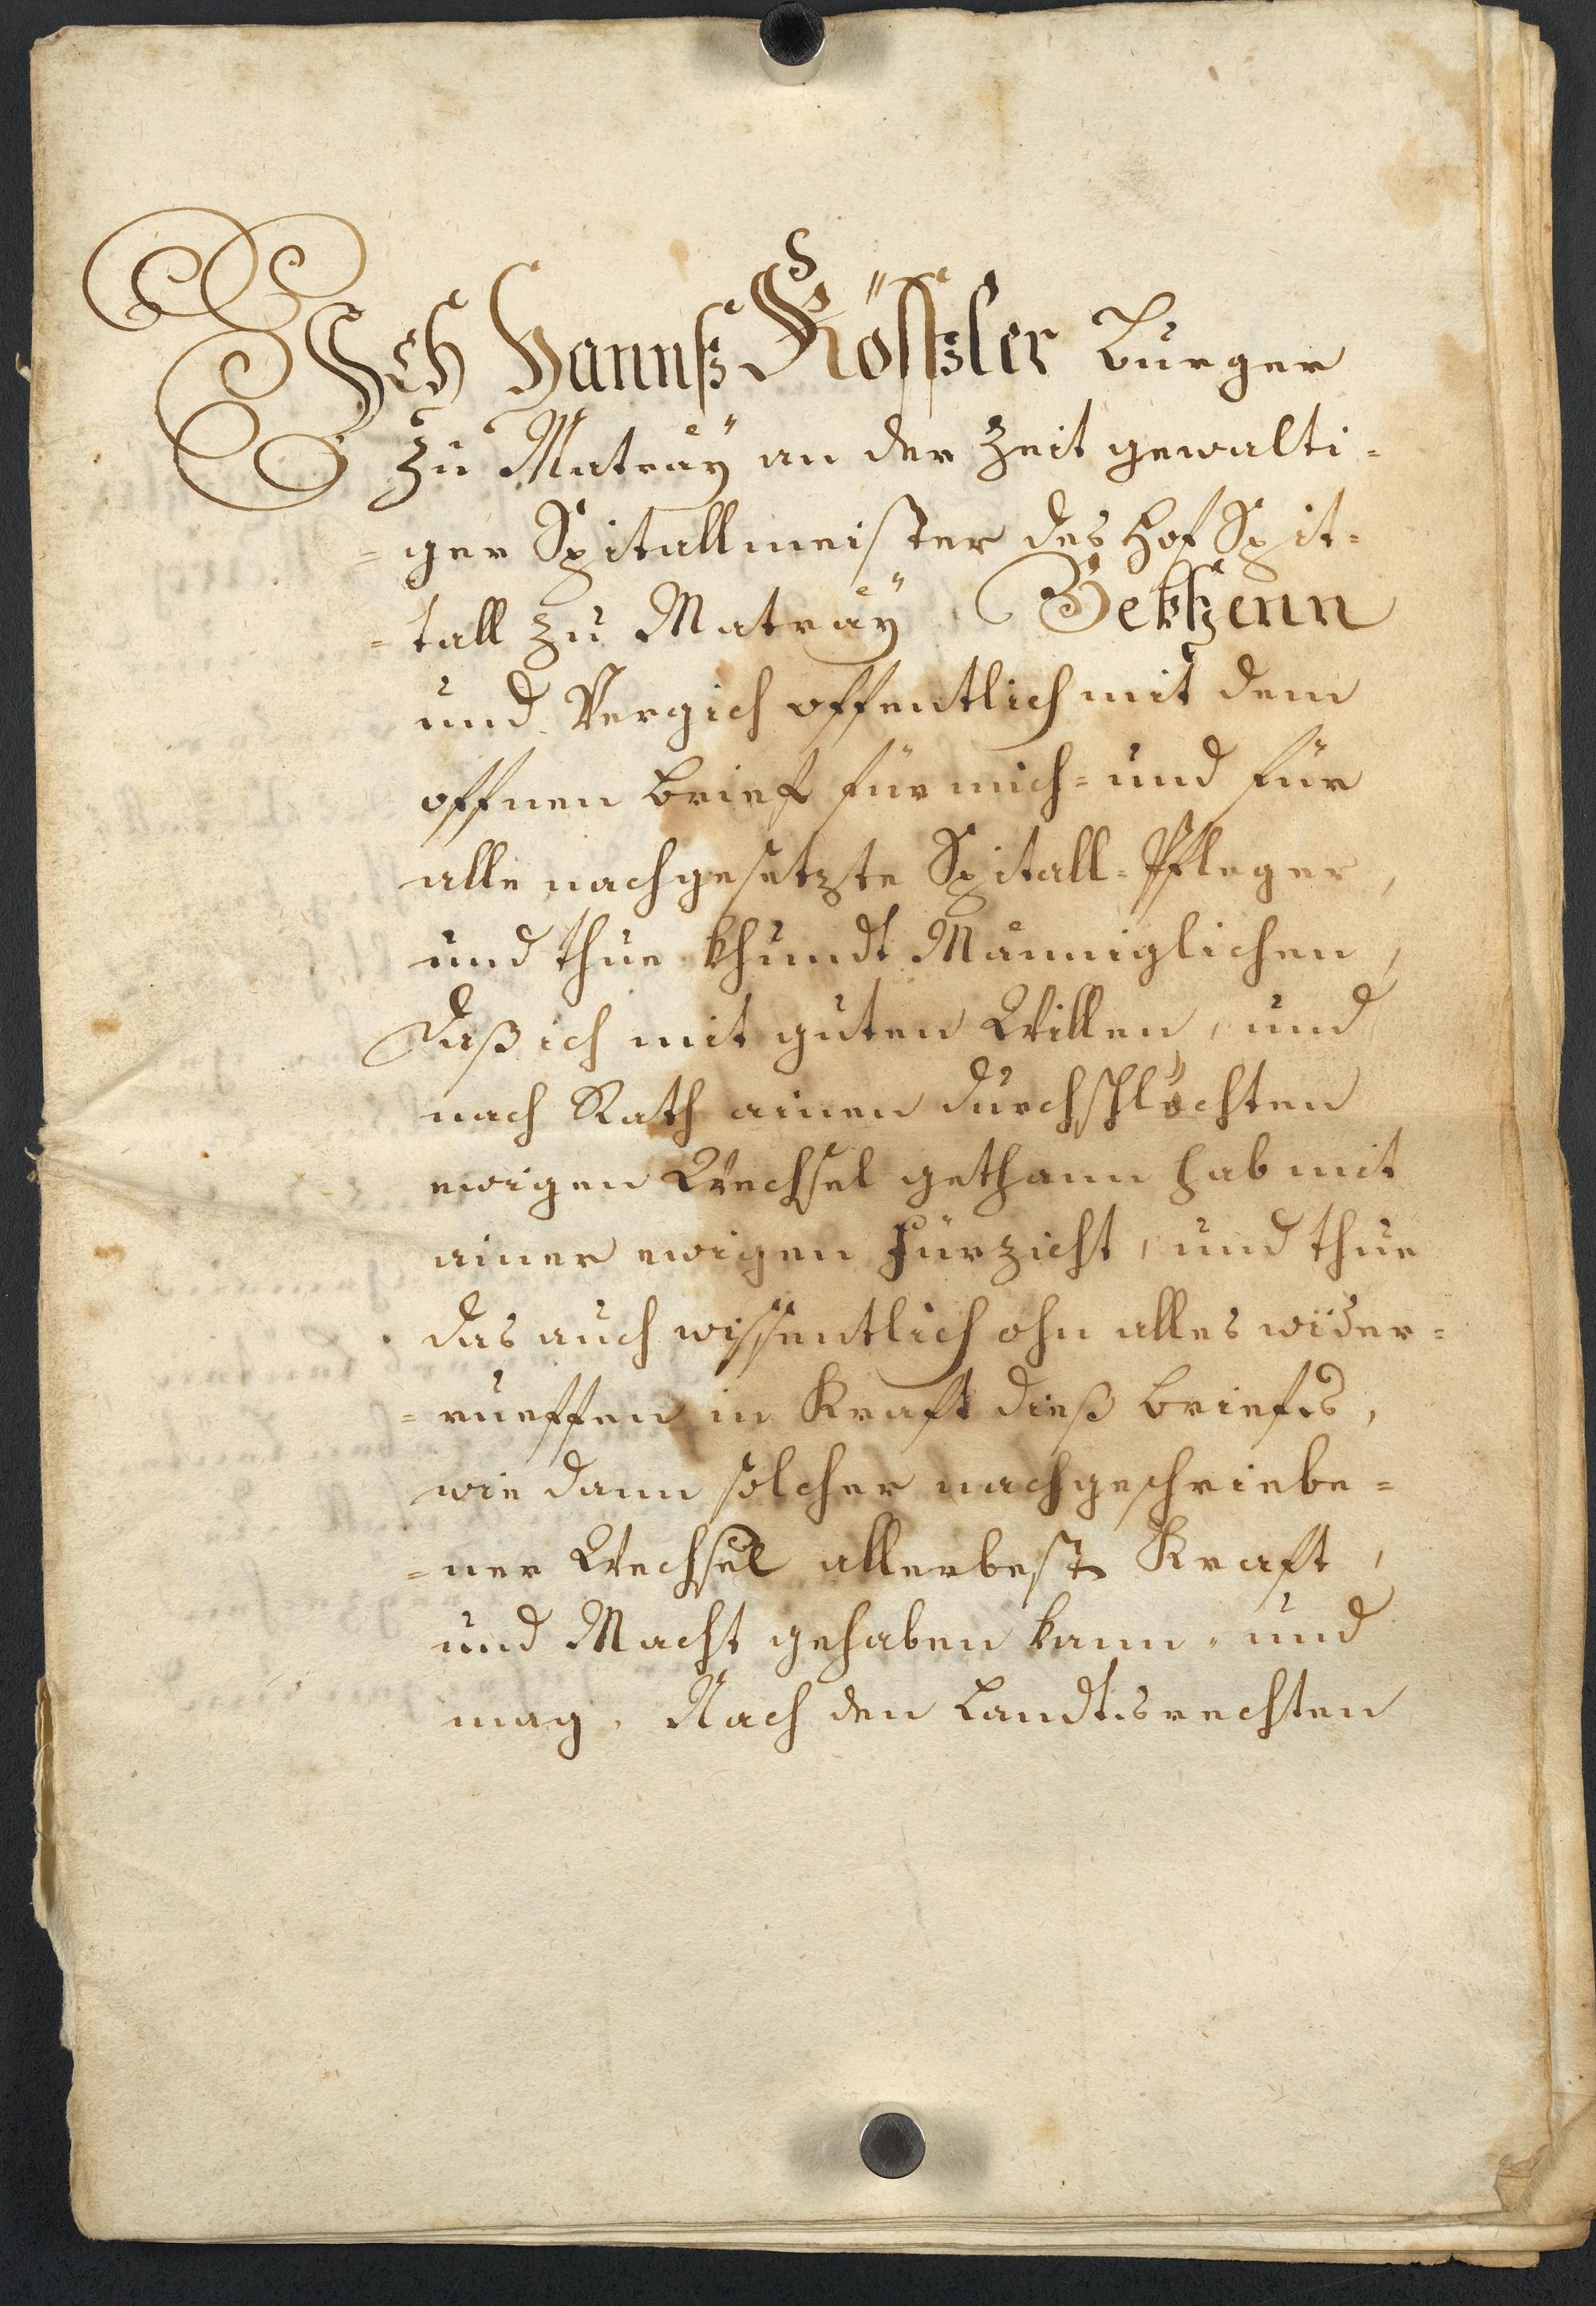 Ich Hannß Kößtzler Burger
zu Matraÿ an der Zeit gewalti=
=ger Spitallmeister des Hof Spit=
=tall zu Matraÿ Bekhenn
und Vergich offentlich mit dem
offnen brief für mich= und für
alle nachgesetzte Spitall=Pfleger,
und thue khundt Männiglichen,
daß ich mit guten Willen, und
nach Rath ainen durchschlöchten
ewigen Wechsel gethann hab mit
ainer ewigen fürzicht, und thue
das auch wissentlich ohn alles wider=
=rueffen in Kraft dieß briefs,
wie dann solcher nachgeschriebe=
=ner Wechsel allerbest Kraft,
und Macht gehaben kann, und
mag, Nach den Landtsrechten